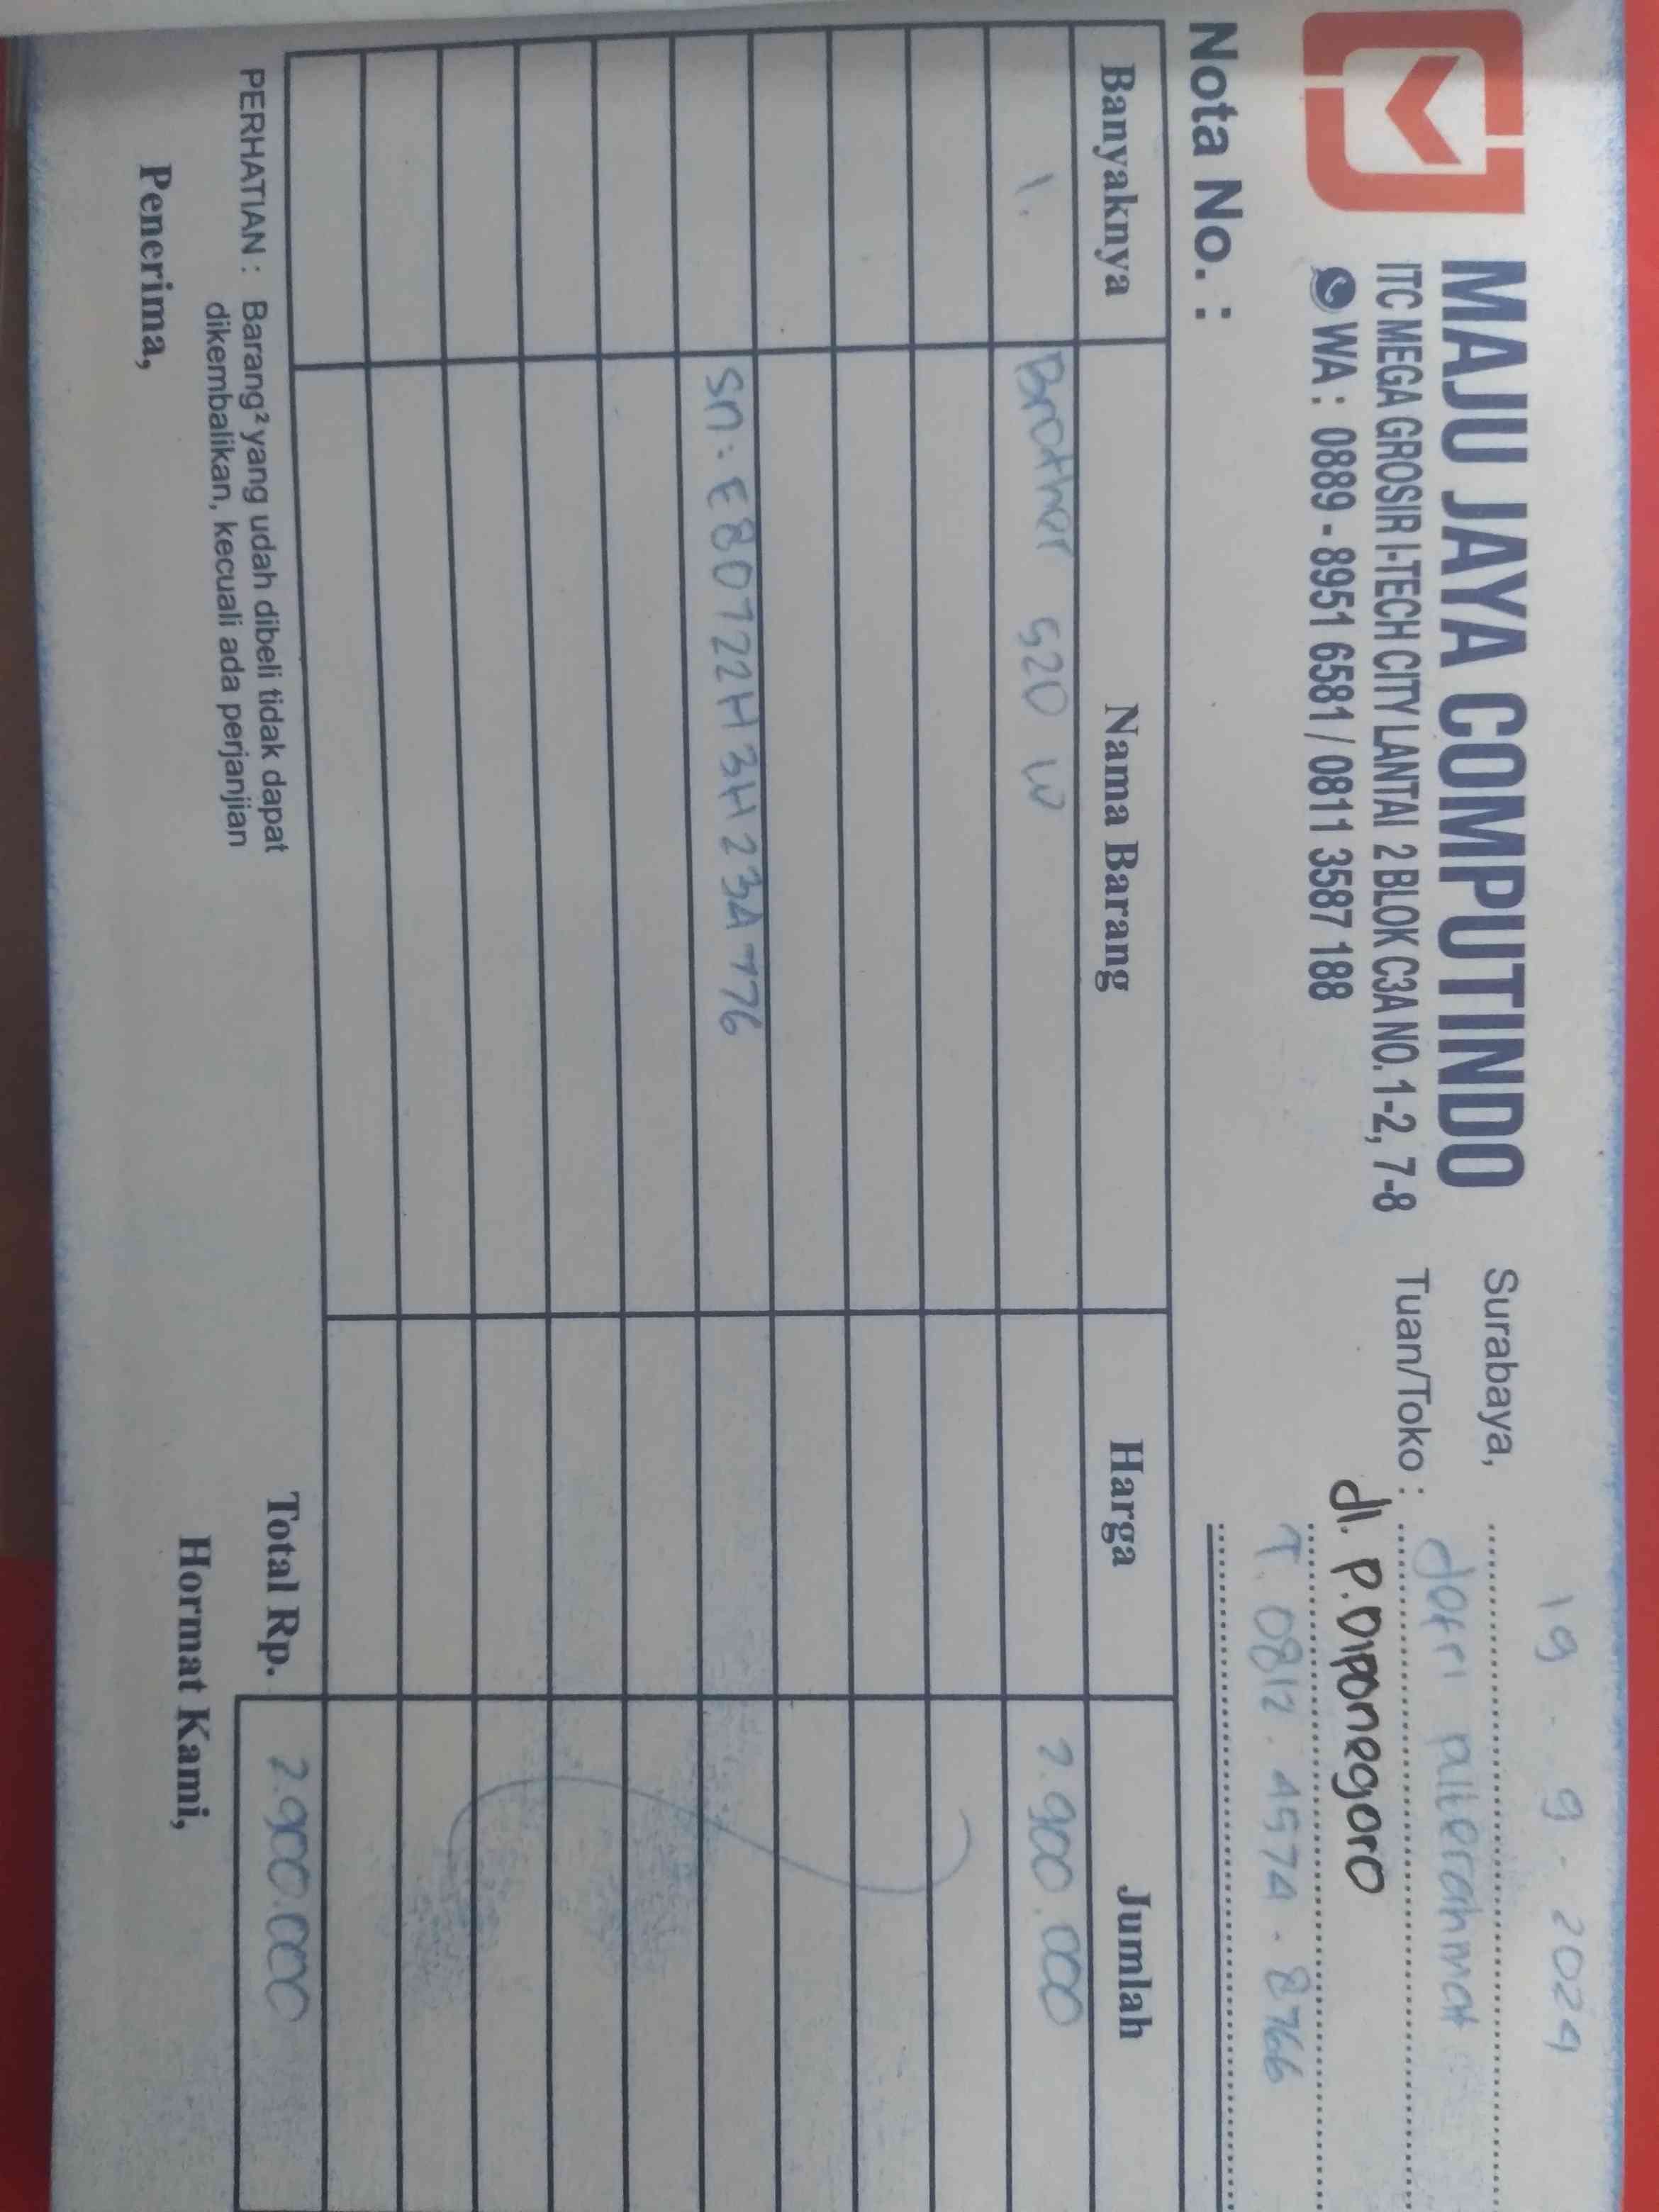 MAJU JAYA COMPUTINDO
ITC MEGA GROSIR I-TECH CITY LANTAI 2 BLOK C3A NO. 1-2, 7-8
WA : 0889 - 8951 6581 / 0811 3587 188
Surabaya, 19 - 9 - 2024
Tuan/Toko :
Jl. P. Diponegoro
T. 0812 . 4574 . 8766
Nota No. :
Banyaknya Nama Barang Harga Jumlah
1. Brother 520 W 2.900.000
Sn : E80722H3H23A776
Total Rp. 2.900.000
PERHATIAN : Barang² yang udah dibeli tidak dapat
dikembalikan, kecuali ada perjanjian
Penerima, Hormat Kami,